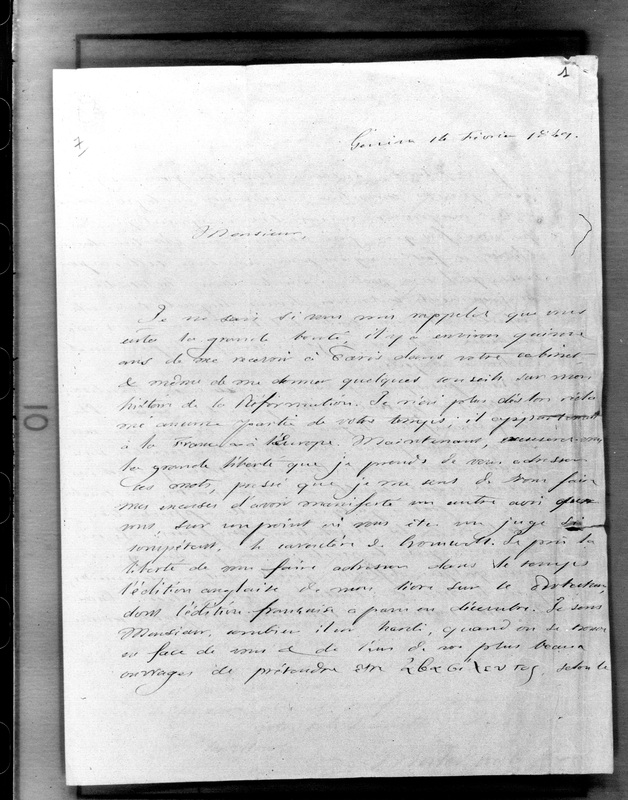 1
Genève 16 février 1849.
Monsieur,
Je ne sais si vous vous rappelez que vous
eutes la grande bonté, il y a environ quinze
ans de me recevoir à Paris dans votre cabinet
& même de me donner quelques conseils sur mon
histoire de la Réformation. Je n'ai plus dès lors
me aucune partie de votre temps; il appartenait
à la France & à l'Europe. Maintenant, excusez
la grande liberté que je prends de vous adresser
ces mots, pressé que je me sens de vous faire
mes excuses d'avoir manifesté un autre avis que
vous, sur un point où vous êtes un juge si
compétent, le caractère de Cromwell. Je pris la
liberté de vous faire adresser dans le temps
l'édition anglaise de mon livre sur le Protecteur,
dont l'édition française a paru en décembre. Je sens
Monsieur, combien il est hardi, quand on se trouve
en face de vous & de l'un de vos plus beaux
ouvrages de prétendre être selon le
10